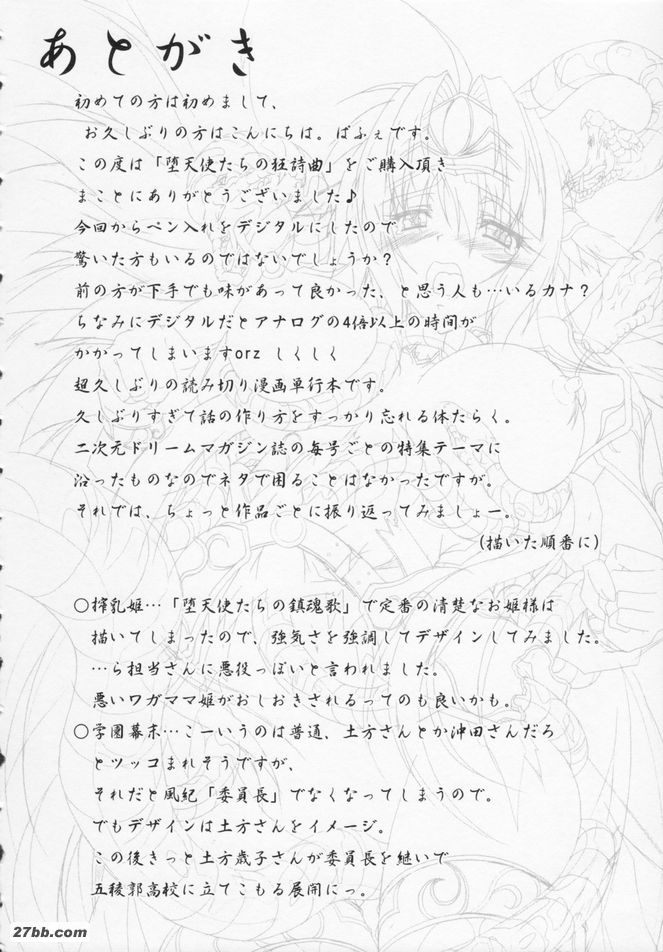 あとがき
初めての方は初めまして、
お久しぶりの方はこんにちは。ぱふぇです。
この度は「堕天使たちの狂詩曲」をご購入頂き
まことにありがとうございました♪
今回からペン入れをデジタルにしたので
驚いた方もいるのではないでしょうか？
前の方が下手でも味があって良かった、と思う人も…いるカナ？
ちなみにデジタルだとアナログの4倍以上の時間が
かかってしまいますorz しくしく
超久しぶりの読み切り漫画単行本です。
久しぶりすぎて話の作り方をすっかり忘れる体たらく。
二次元ドリームマガジン誌の毎号ごとの特集テーマに
沿ったものなのでネタで困ることはなかったですが。
それでは、ちょっと作品ごとに振り返ってみましょー。
(描いた順番に)
○搾乳姫…「堕天使たちの鎮魂歌」で定番の清楚なお姫様は
描いてしまったので、強気さを強調してデザインしてみました。
…ら担当さんに悪役っぽいと言われました。
悪いワガママ姫がおしおきされるってのも良いかも。
○学園幕末…こーいうのは普通、土方さんとか沖田さんだろ
とツッコまれそうですが、
それだと風紀「委員長」でなくなってしまうので。
でもデザインは土方さんをイメージ。
この後きっと土方歳子さんが委員長を継いで
五稜郭高校に立てこもる展開にっ。
27bb.com